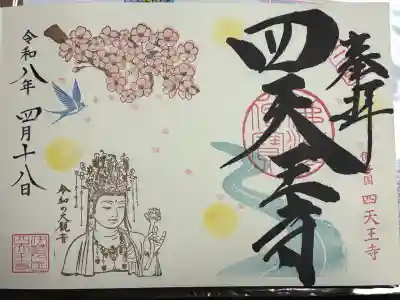 奉拝
国 四天王寺
四天王寺
令和の大観音
令和八年 四月十八日